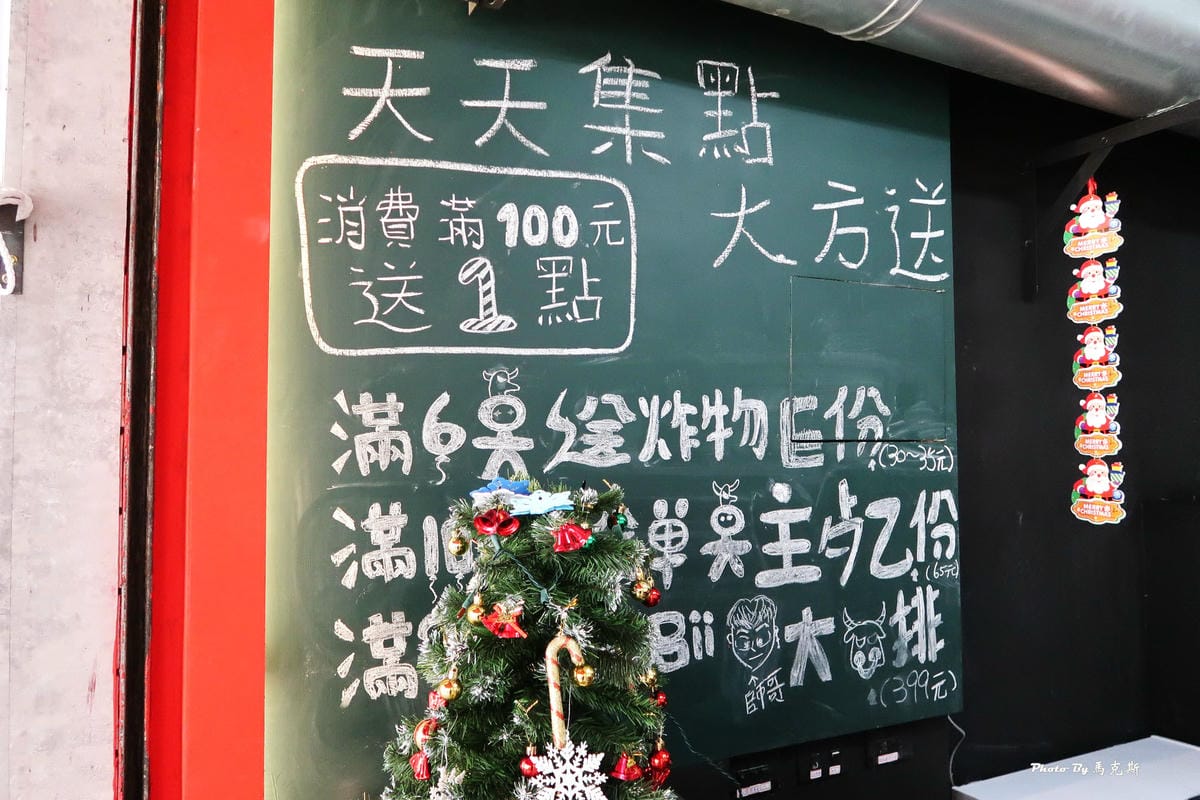 天天集點
大方送
消費滿100元
送1點
滿6點送炸物E份
(30~35元)
滿10 單點主占乙份
(65元)
滿 Bii 大 排
師哥
(399元)
MERRY CHRISTMAS
MERRY CHRISTMAS
MERRY CHRISTMAS
MERRY CHRISTMAS
MERRY CHRISTMAS
Photo By 馬克斯